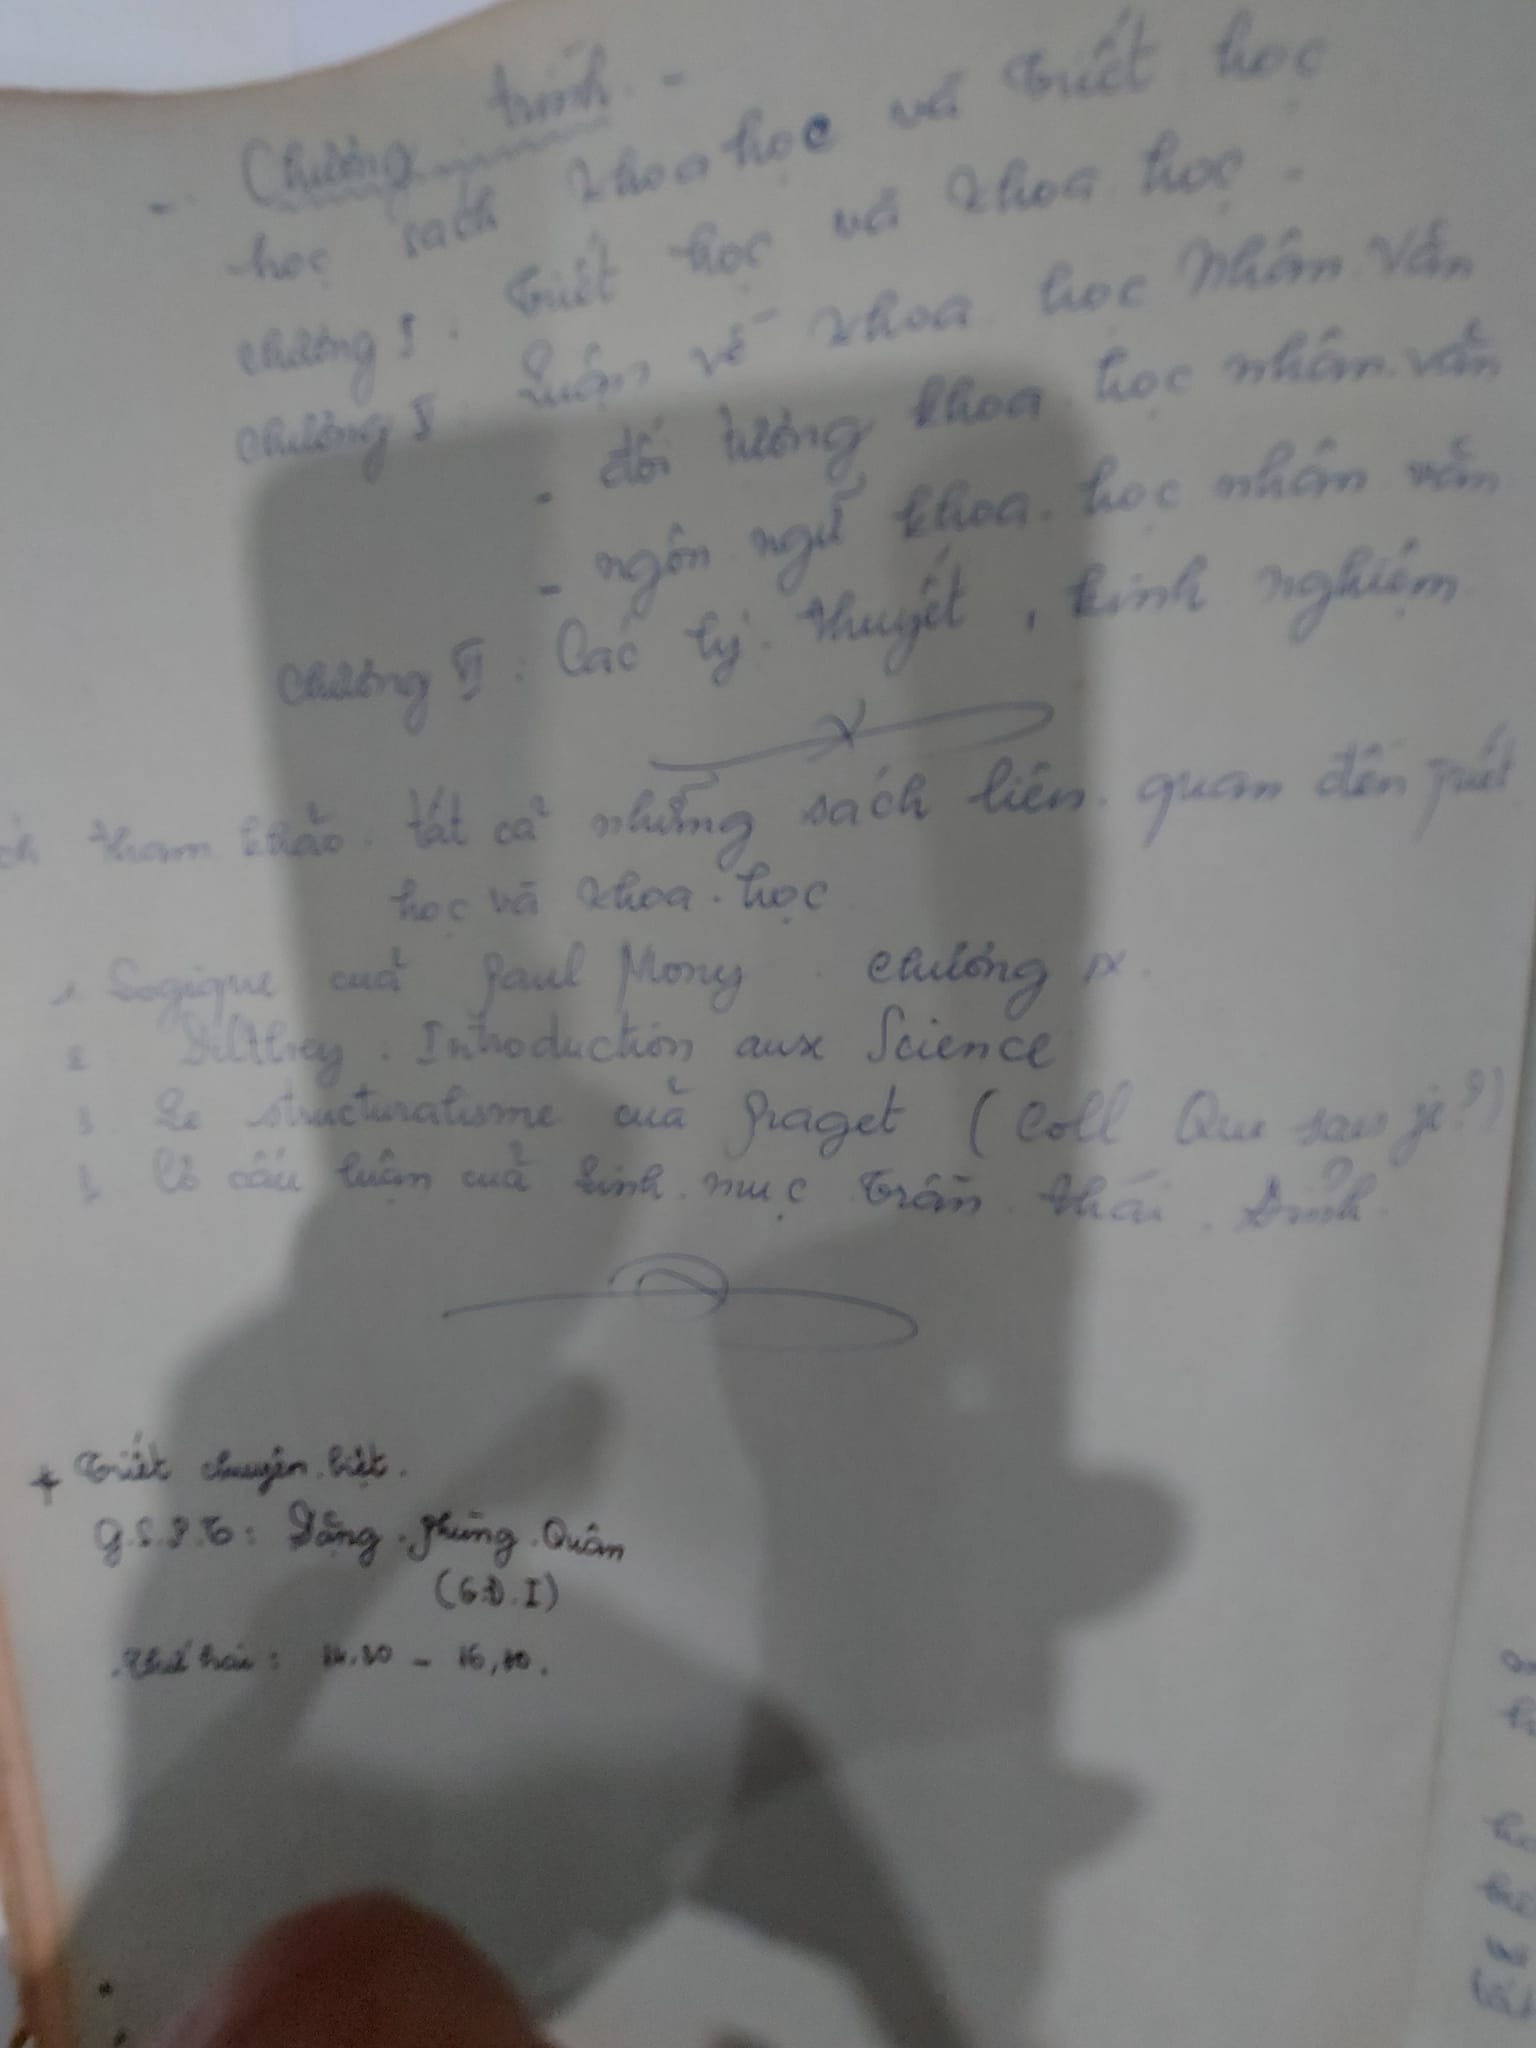 - Chương trình -
học sách Khoa học và Triết học
chương I. Triết học và Khoa học.
chương V. Luận về Khoa học Nhân Văn
- đối tượng khoa học nhân văn
- ngôn ngữ khoa học nhân văn
chương VI. Các lý thuyết, kinh nghiệm
tham khảo. Tất cả những sách liên quan đến triết
học và Khoa học
1. Logique của Paul Mony. chương IX.
2 Dilthey. Introduction aux Science
3 Le structuralisme của Piaget (Coll Que sais je?)
Cơ cấu luận của Linh mục Trần Thái Đỉnh.
+ Triết chuyên biệt.
G.S.P.T: Đặng Phùng Quân
(G.Đ.I)
Thứ hai: